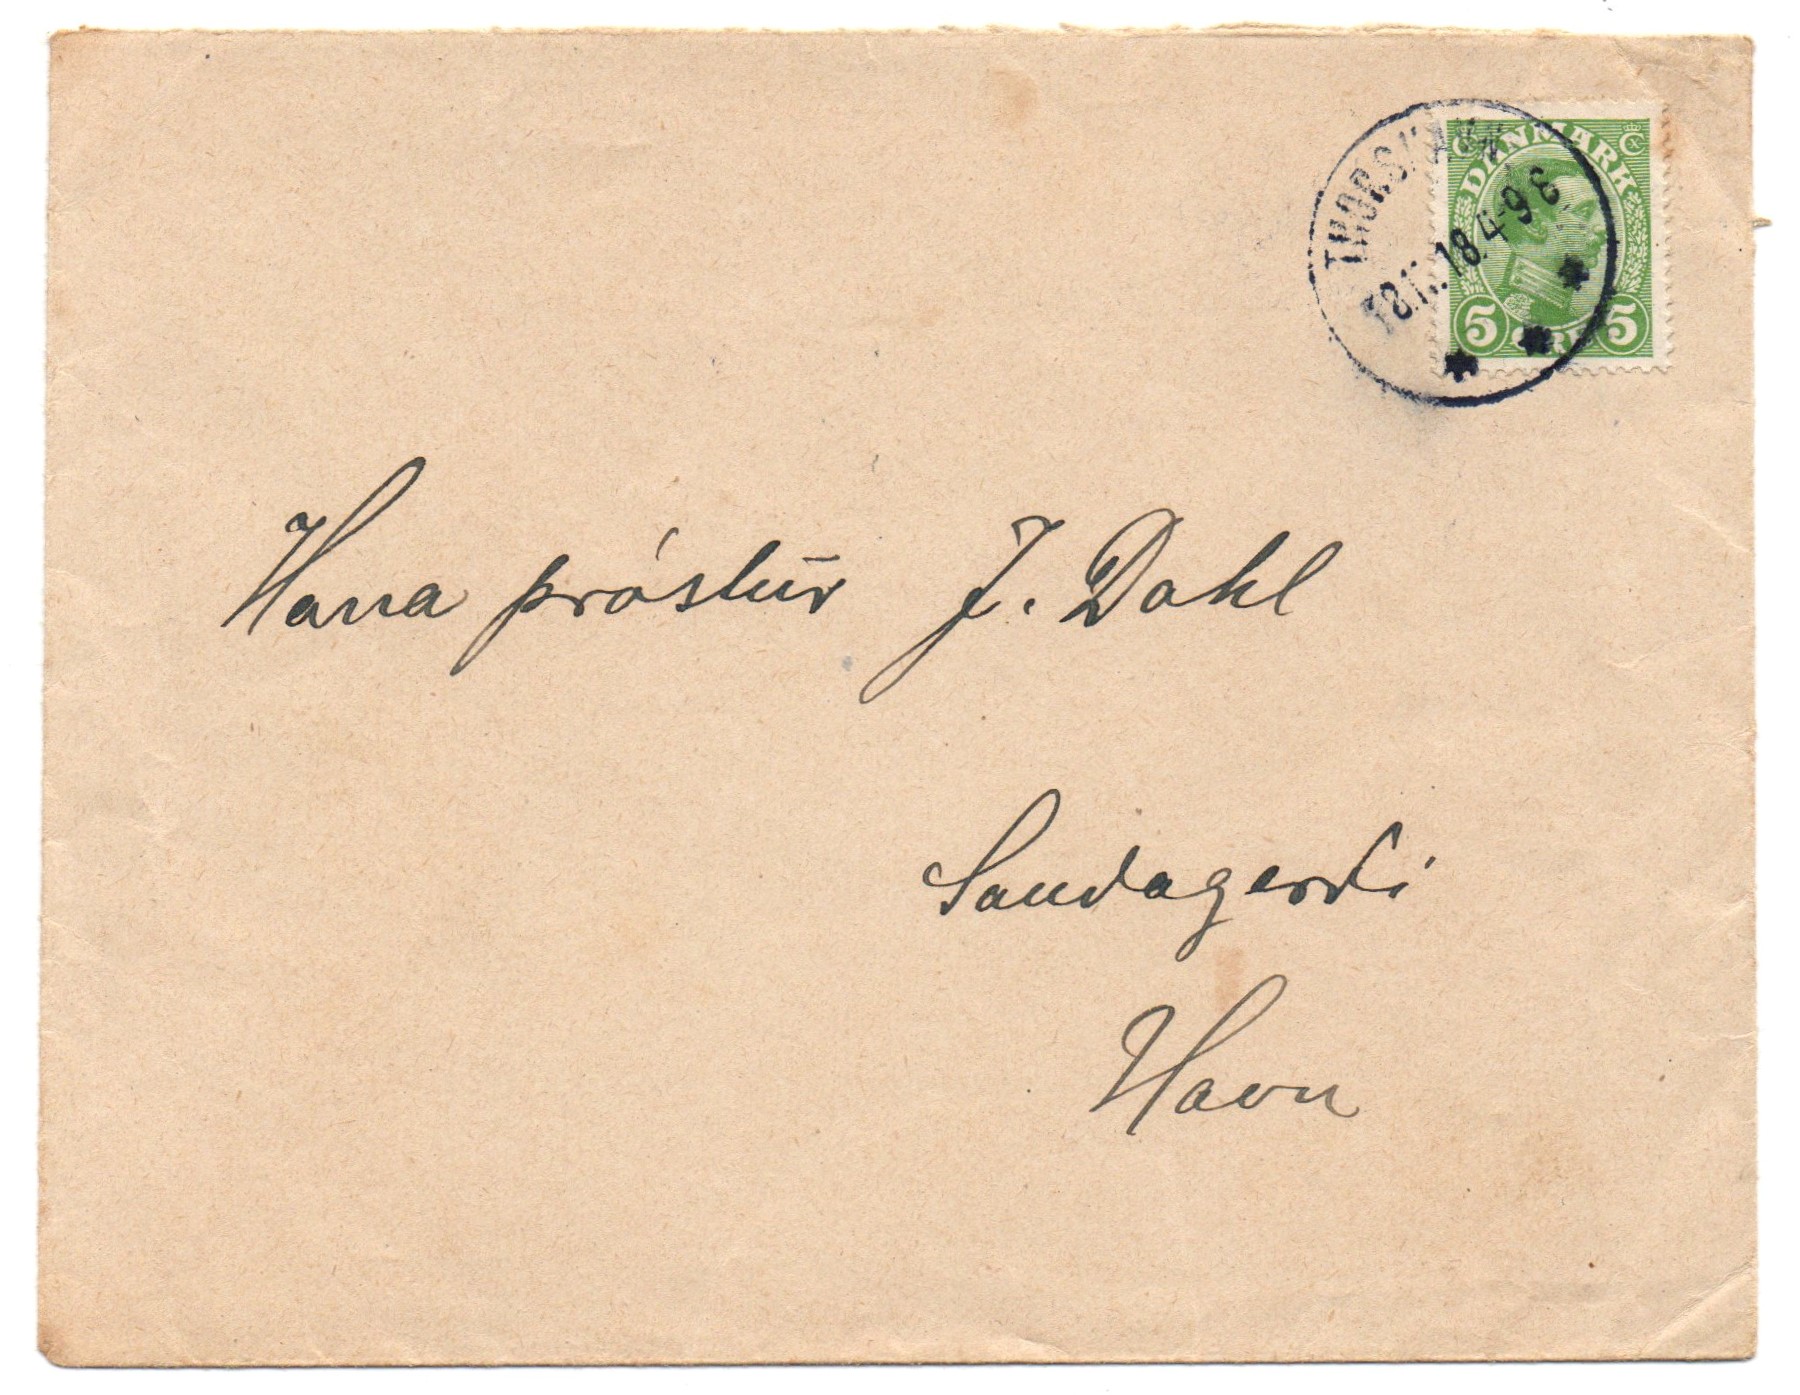 THORSHAVN
18.4-9 E
DANMARK
5 ØRE 5
Harra próstur J. Dahl
Sandagerði
Havn